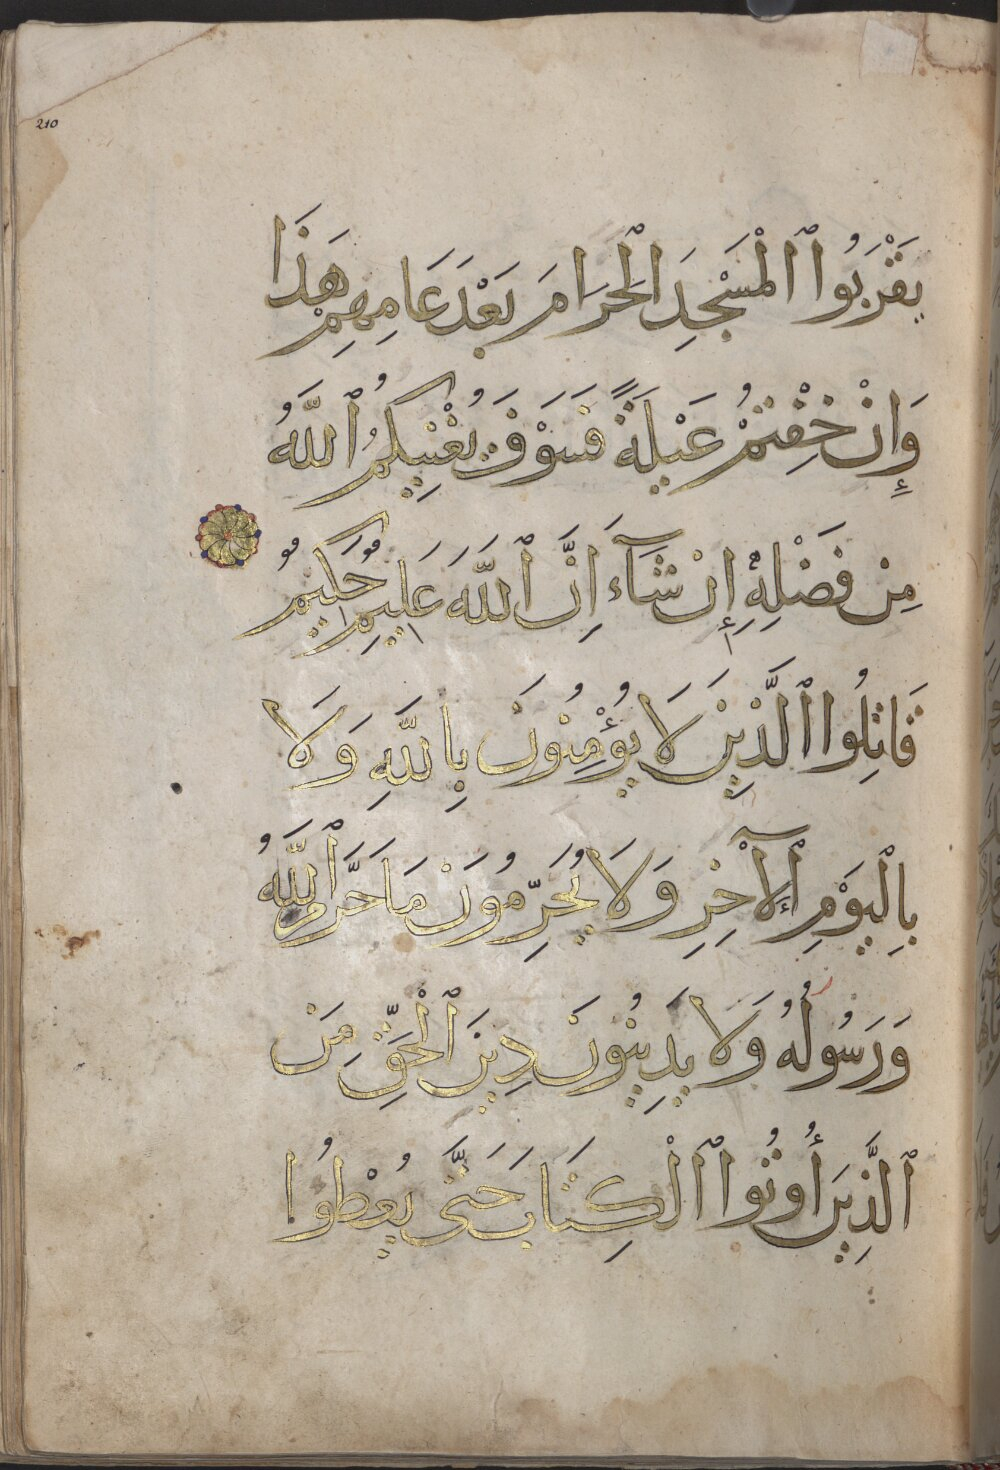 210
يَقْرَبُوا ٱلْمَسْجِدَ ٱلْحَرَامَ بَعْدَ عَامِهِمْ هَذَا
وَإِنْ خِفْتُمْ عَيْلَةً فَسَوْفَ يُغْنِيكُمُ ٱللَّهُ
مِن فَضْلِهِ إِن شَآءَ إِنَّ ٱللَّهَ عَلِيمٌ حَكِيمٌ
قَاتِلُوا ٱلَّذِينَ لَا يُؤْمِنُونَ بِاللَّهِ وَلَا
بِالْيَوْمِ ٱلْآخِرِ وَلَا يُحَرِّمُونَ مَا حَرَّمَ ٱللَّهُ
وَرَسُولُهُ وَلَا يَدِينُونَ دِينَ ٱلْحَقِّ مِنَ
ٱلَّذِينَ أُوتُوا ٱلْكِتَابَ حَتَّى يُعْطُوا